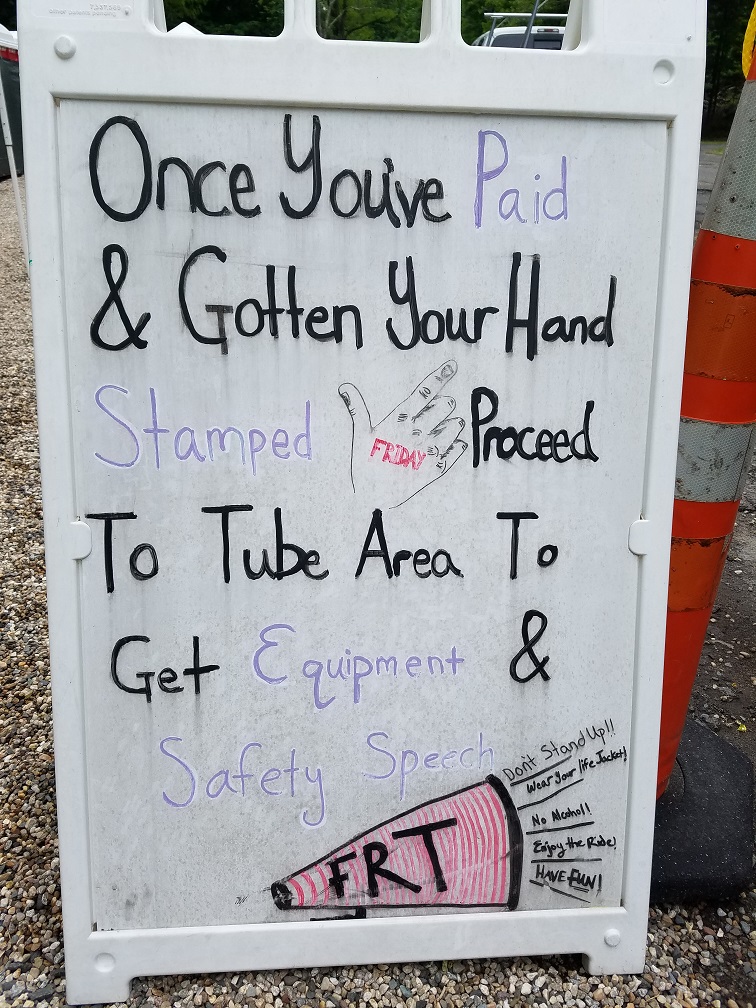 Once You've Paid
& Gotten Your Hand
Stamped FRIDAY Proceed
To Tube Area To
Get Equipment &
Safety Speech
Don't Stand Up!!
Wear your life Jacket!
No Alcohol!
Enjoy the Ride!
HAVE FUN!
FRT